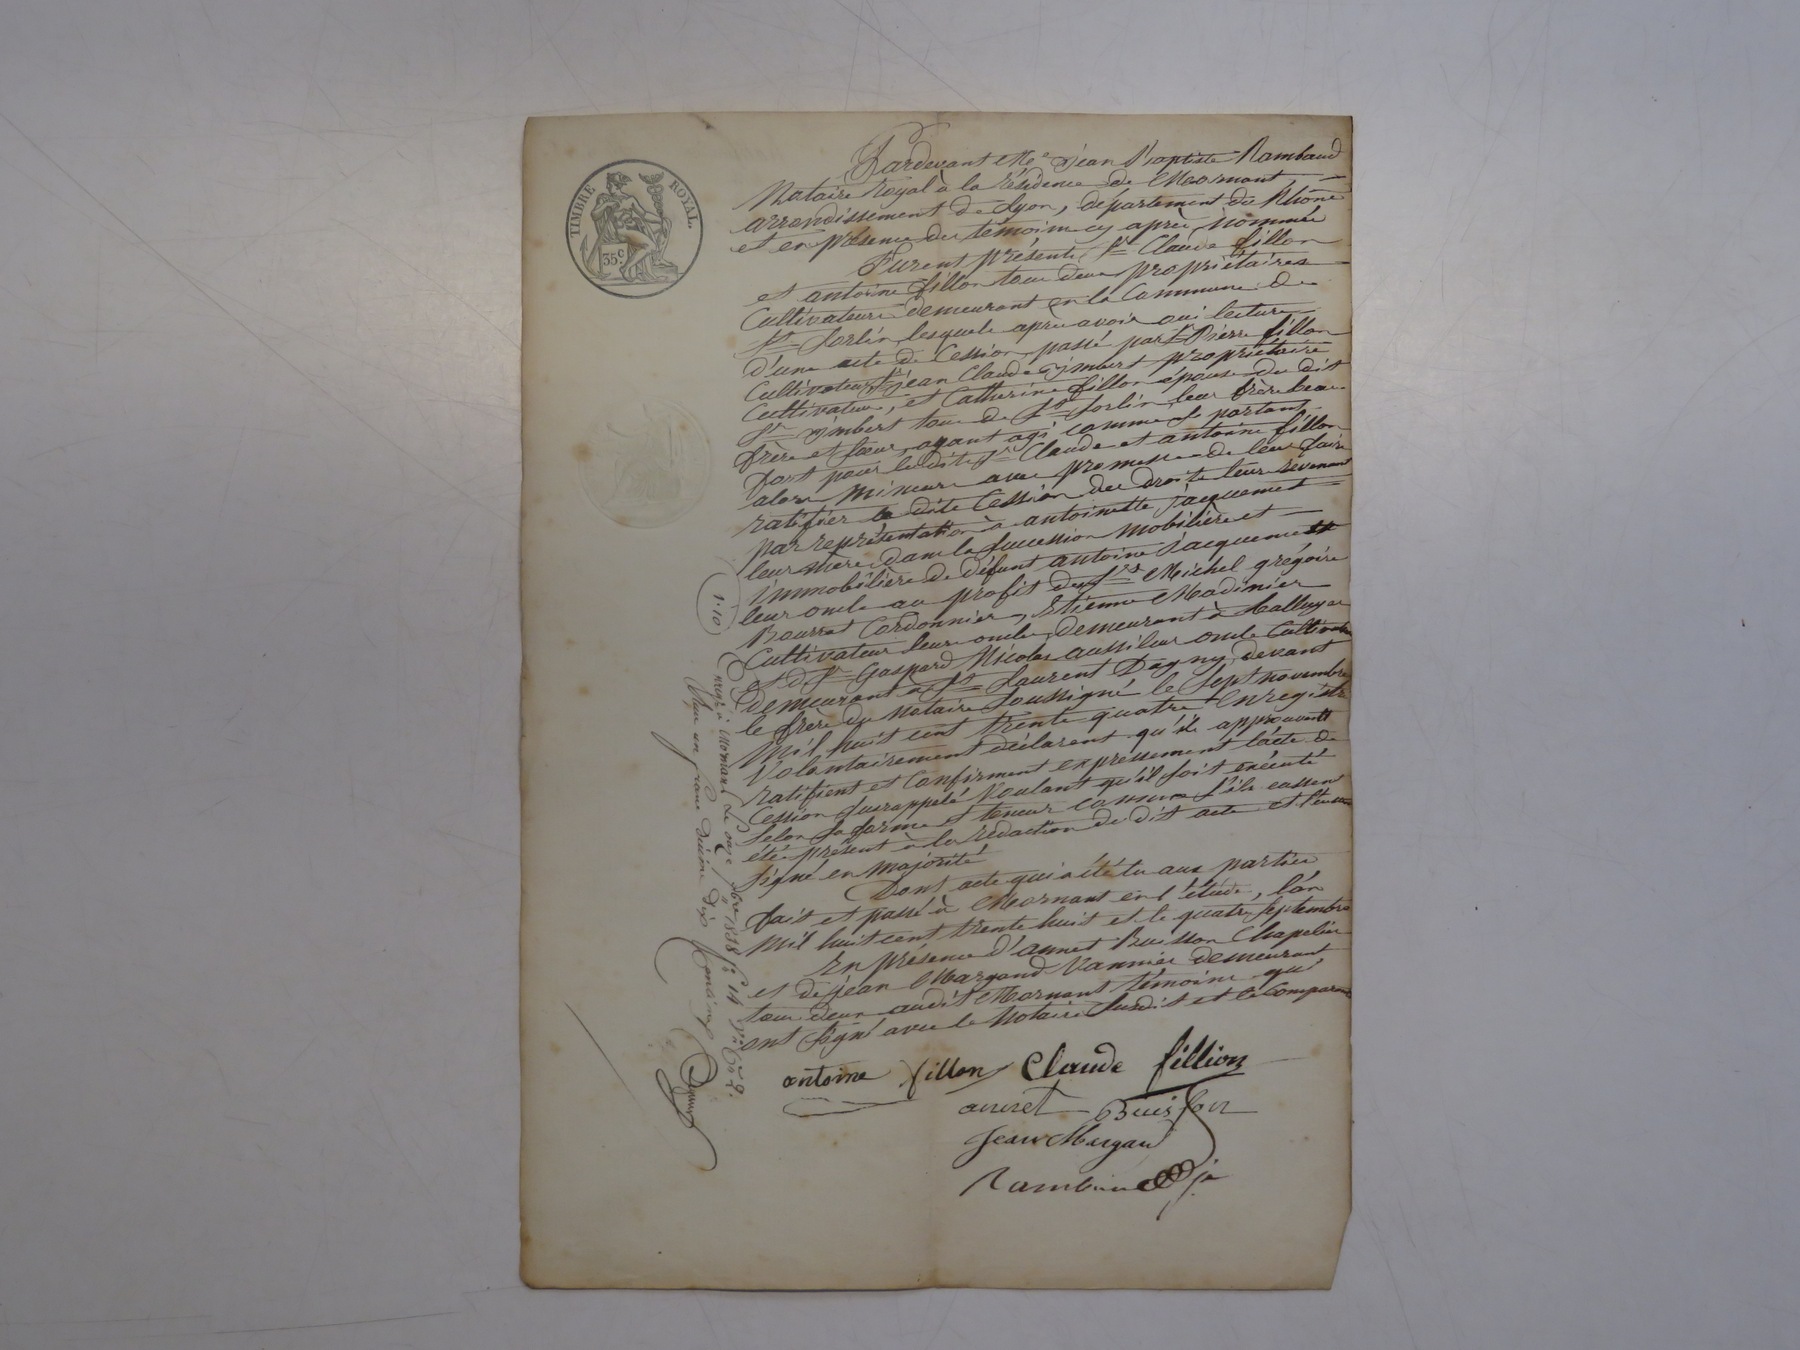 TIMBRE ROYAL
35.c
Pardevant Me. Jean Baptiste Rambaud
Notaire royal à la résidence de Mornant,
arrondissement de Lyon, département du Rhône
et en présence des témoins cy après nommés
Furent présents Srs Claude fillon
et antoine fillon tous deux propriétaires
Cultivateurs demeurant en la Commune de
St Sorlin lesquels après avoir oui lecture
d'une acte de Cession passé par Sr Pierre fillon
Cultivateur, Sr jean Claude imbert propriétaire
Cultivateur, et Catherine fillon épouse du dit
Sr imbert tous de St Sorlin leur frère beau
frère et sœur, ayant agi comme se portant
fort pour les dits Srs Claude et antoine fillon
alors mineurs avec promesse de leur faire
ratifier la dite Cession des droits leurs revenant
par représentation à antoinette jacquemet
leur mère, dans la succession mobilière et
immobilière de défunt antoine jacquemet
leur oncle au profit des Srs Michel grégoire
Bourrat Cordonnier, Etienne Madinier
Cultivateur leurs oncles demeurant à
et d Sr Gaspard Nicolas aussi leur oncle Cultivateur
demeurant à St Laurent Dagny, devant
le frère du Notaire soussigné le sept novembre
Mil huit cent trente quatre enregistré
Volontairement déclarent qu'ils approuvent
ratifient et Confirment expressement l'acte de
Cession susrappelé Voulant qu'il soit exécuté
selon sa forme et teneur comme s'ils eussent
été présent à la rédaction du dit acte et l'eussent
signé en majorité
Dont acte qui a été lu aux parties
fait et passé à Mornant en l'étude, l'an
mil huit cent trente huit et le quatre septembre
En présence d'annet Buisson Chapelier
et de jean Margand Vannier demeurant
tous deux audit Mornant témoins qui
ont signé avec le Notaire susdit et les Comparants
antoine fillon Claude fillion
annet Buisson
Jean Margan
Rambaud
1.10
Enreg. à Mornant Le onze 7bre 1838 fo 14
un franc décime dix centimes